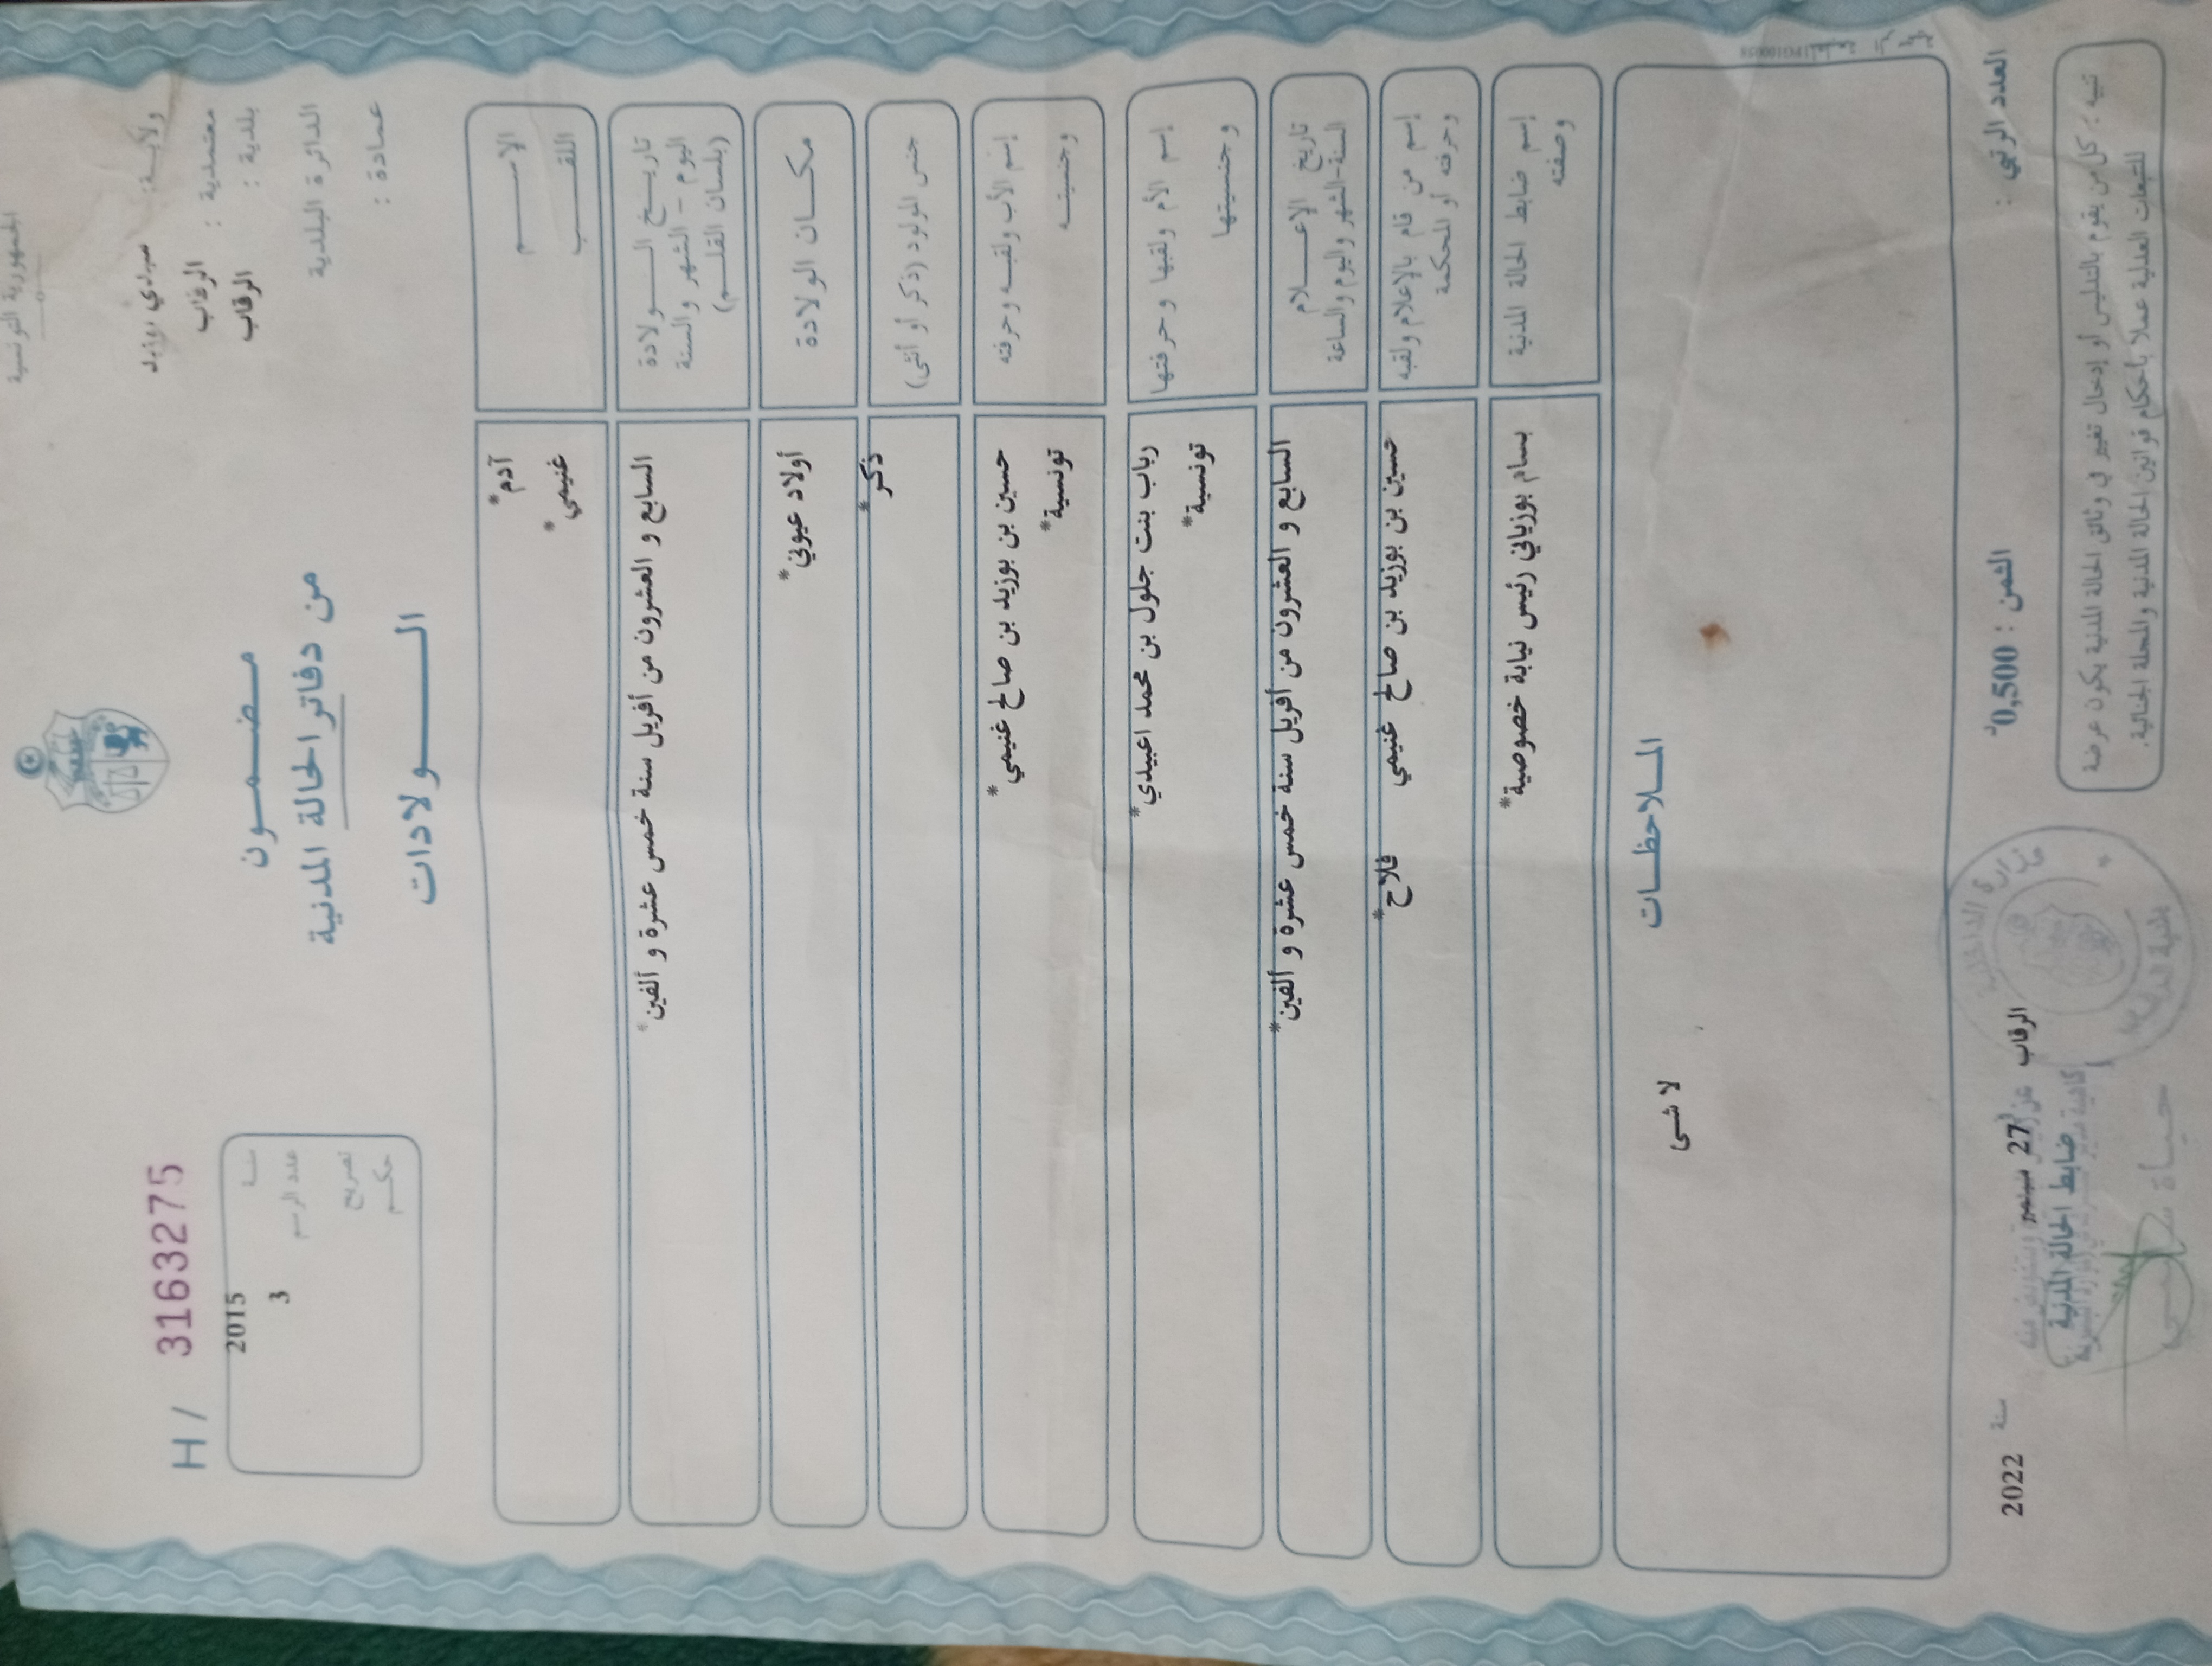 الجمهورية التونسية
ولاية: سيدي بوزيد
معتمدية : الرقاب
بلدية : الرقاب
الدائرة البلدية
عمادة :
H / 3163275
سنة 2015
عدد الرسم 3
تصريح
حكم
مضمون
من دفاتر الحالة المدنية
الولادات
الاسم آدم*
اللقب غنيمي*
تاريخ الولادة
اليوم - الشهر والسنة
(بلسان القلم)
السابع و العشرون من أفريل سنة خمس عشرة و ألفين*
مكان الولادة أولاد عيوني*
جنس المولود (ذكر أو أنثى) ذكر*
إسم الأب ولقبه وحرفته حسين بن بوزيد بن صالح غنيمي*
وجنسيته تونسية*
إسم الأم ولقبها وحرفتها رباب بنت جلول بن محمد اعبيدي*
وجنسيتها تونسية*
تاريخ الإعلام
السنة-الشهر واليوم والساعة
السابع و العشرون من أفريل سنة خمس عشرة و ألفين*
إسم من قام بالإعلام ولقبه
وحرفته أو المحكمة
حسين بن بوزيد بن صالح غنيمي فلاح*
إسم ضابط الحالة المدنية
وصفته
بسام بوزياني رئيس نيابة خصوصية*
الملاحظات
لا شى
العدد الرتبي :
الثمن : 0,500د
الرقاب 27 سنة 2022
ضابط الحالة المدنية
تنبيه : كل من يقوم بالتدليس أو إدخال تغيير في وثائق الحالة المدنية يكون عرضة
للتبعات العدلية عملا بأحكام قوانين الحالة المدنية والمجلة الجنائية.